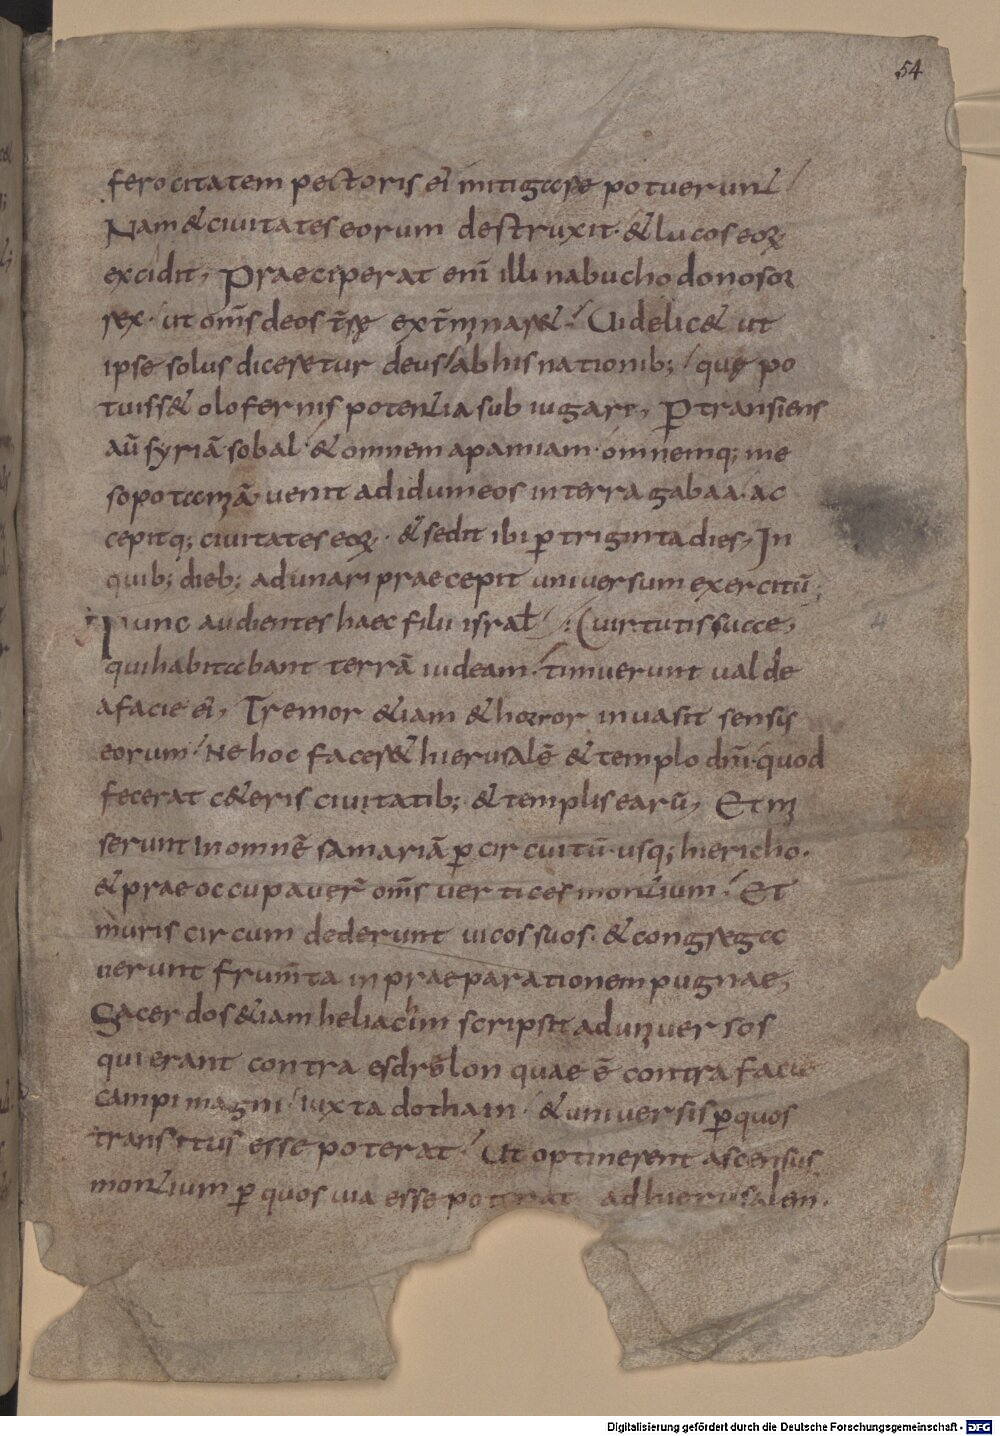 54
ferocitatem pectoris ei᾽ mitigare potuerunt
Nam & ciuitates eorum destruxit · & lucos eoꝝ
excidit, Praeciperat eni̅ illi nabuchodonosor
rex · ut om̅s deos t̅rę ext̅minar& · Uidelic& ut
ipse solus diceretur deus ab his nationib; quę po
tuiss& olofernis potentia subiugare, Ꝑtransiens
au̅ syria̅ sobal · & omnem apamiam · omnemq; me
sopotamia̅ uenit ad idumeos in terra gabaa · ac
cepitq; ciuitates eoꝝ · & sedit ibi ꝑ triginta dies, In
quib; dieb; adunari praecepit uniuersum exercitu̅;
Tunc audientes haec filii israł · uirtutis succe,
qui habitabant terra̅ iudeam · timuerunt ualde
a facie ei᾽, Tremor &iam & horror inuasit sensis
eorum · Ne hoc facer& hierusale̅ & templo dn̅i · quod
fecerat c&eris ciuitatib; & templis earu̅, Et mi
serunt in omne̅ samaria̅ ꝑ circuitu̅ · usq; hiericho ·
& praeoccupauer̅ om̅s uertices montium · Et
muris circumdederunt uicos suos · & congrega
uerunt frum̅ta in praeparationem pugnae,
Sacerdos &iam heliachim scripsit ad uniuersos
qui erant contra esdrelon quae e̅ contra facie
campi magni · iuxta dothain · & uniuersis ꝑ quos
transitus esse poterat · Ut optinerent ascensus
montium ꝑ quos uia esse poterat ad hierusalem ·
Digitalisierung gefördert durch die Deutsche Forschungsgemeinschaft - DFG